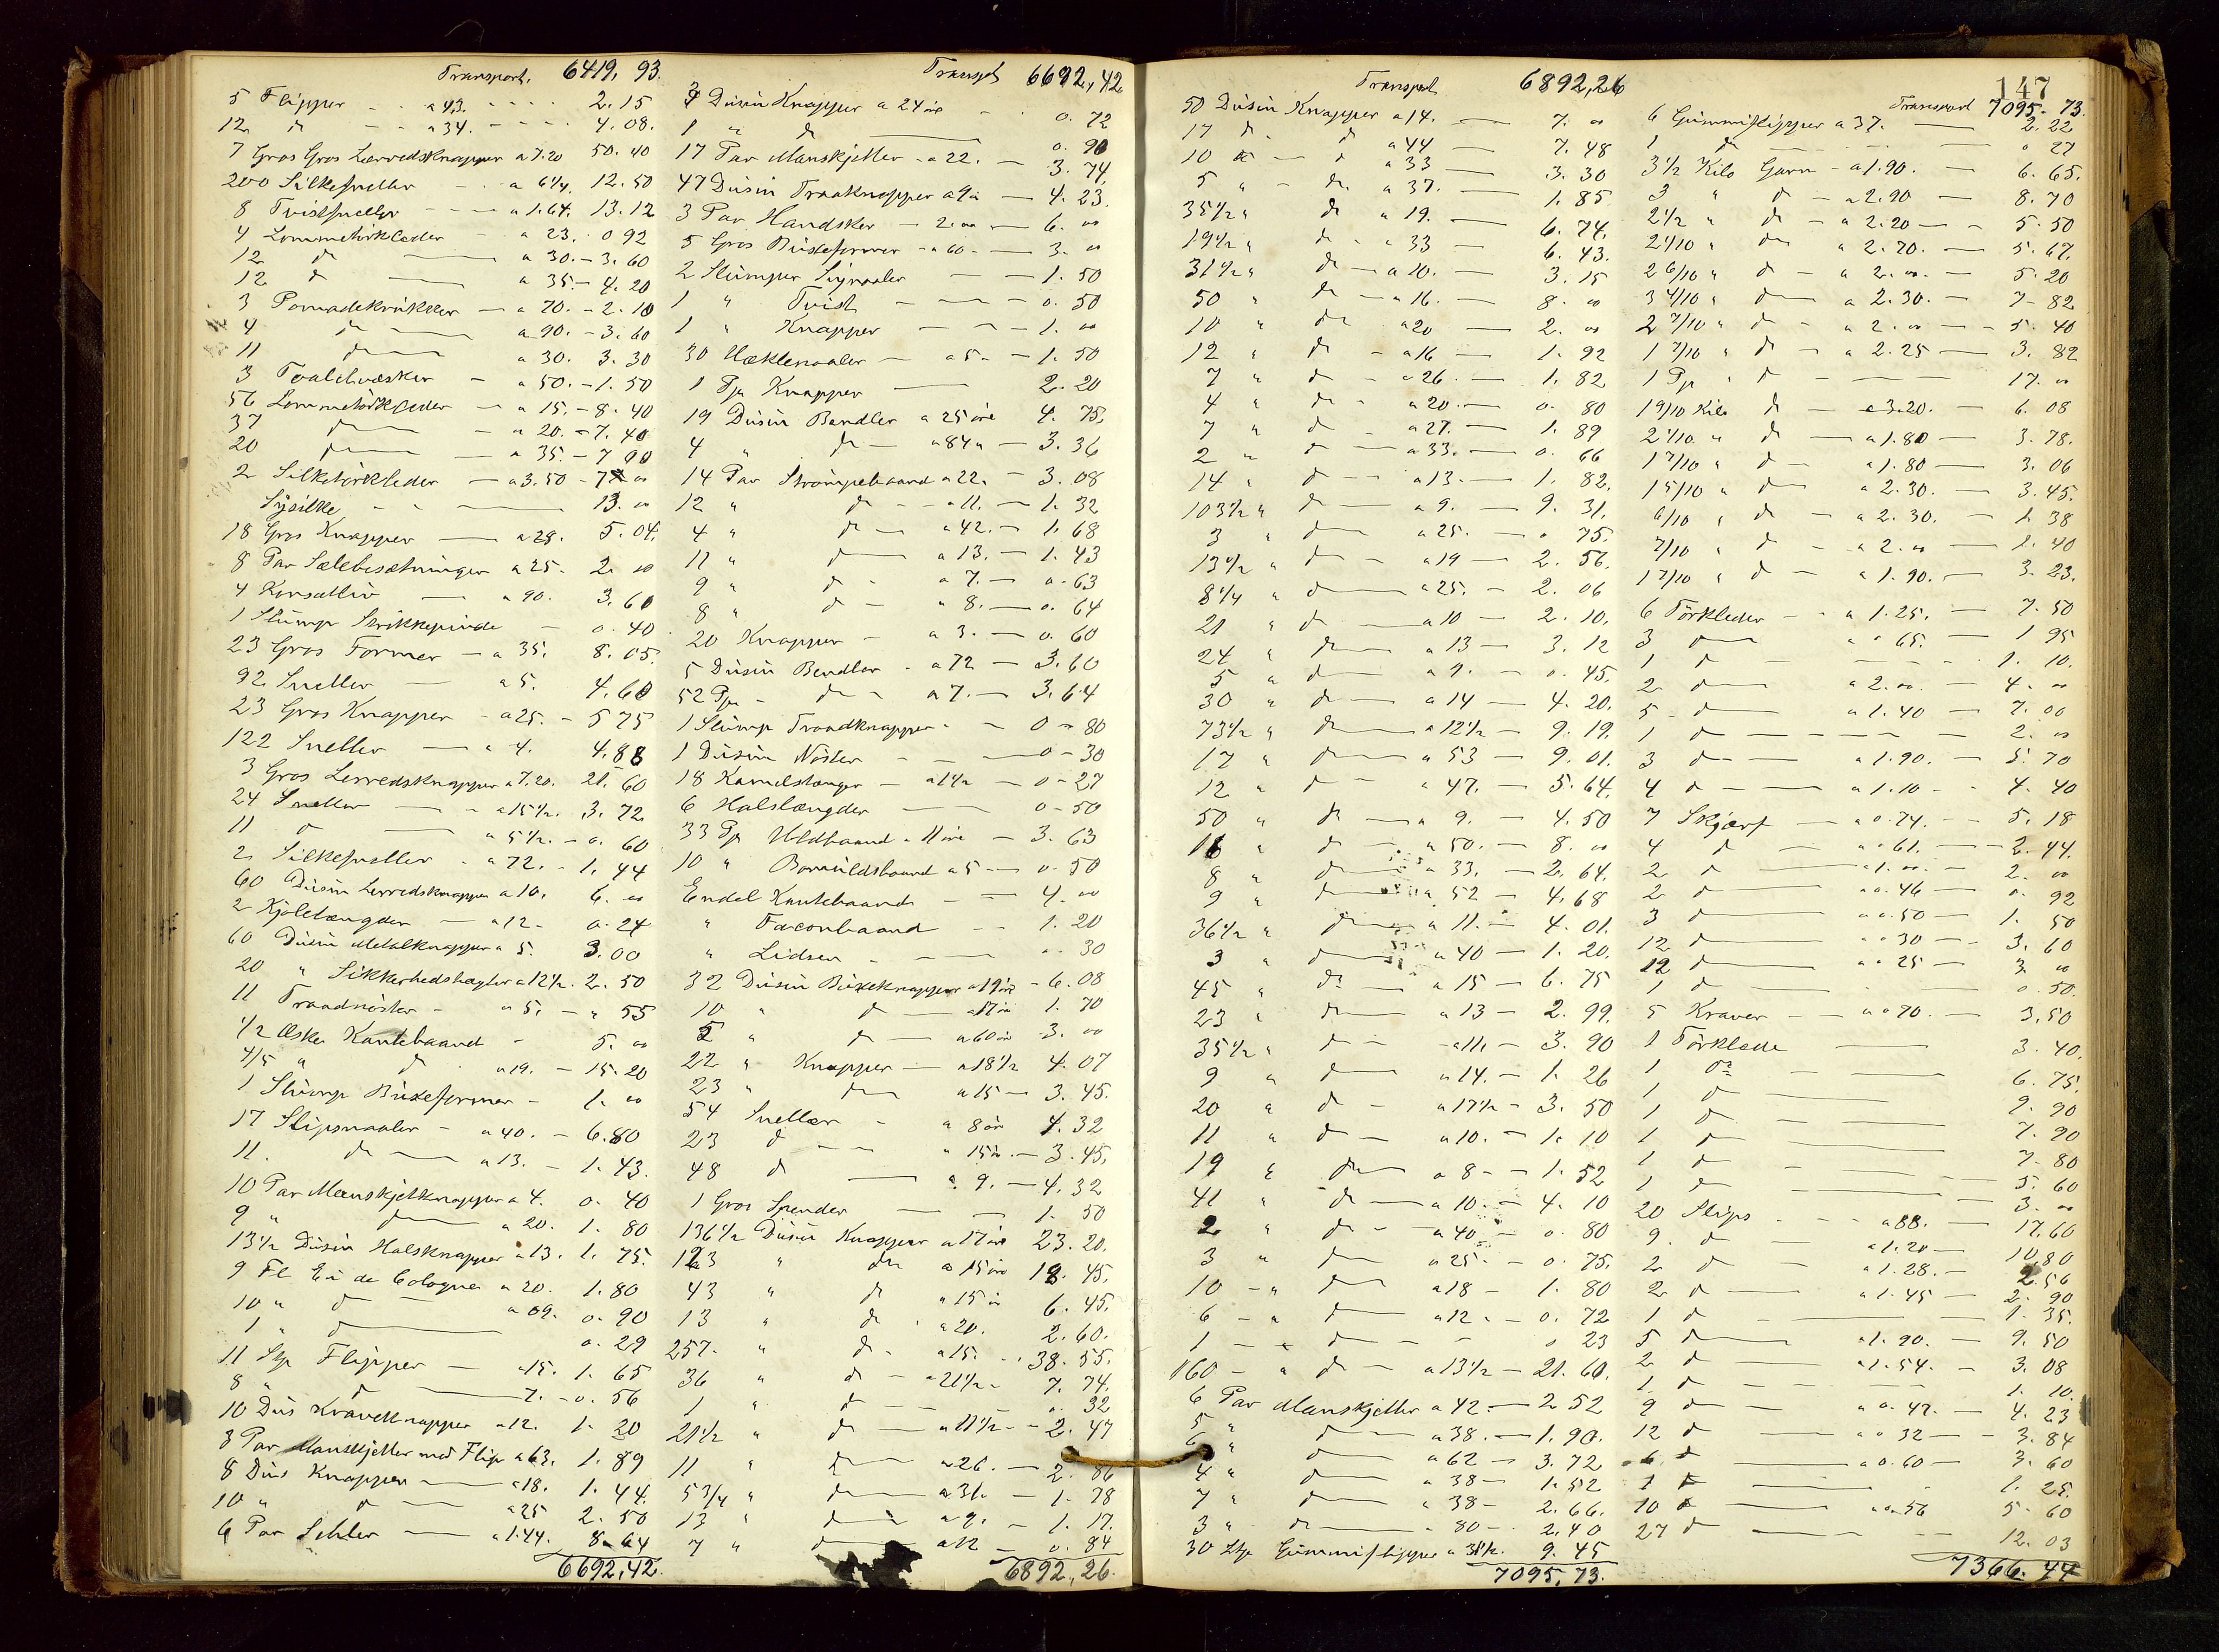 Transport. 6419, 93.
5 Flipper - - a 43. - - - - 2. 15
12 d - - a 34. - - - - 4. 08.
7 Gros Gros Lærredsknapper a 7. 20 50. 40
200 Silkesneller - - a 6 1/4. 12. 50
8 Tvistsneller - - - a 1. 64. 13. 12
4 Lommetörklæder - a 23. 0 92
12 d a 30. - 3. 60
12 d a 35. - 4. 20
3 Pomadekrukker - a 70. - 2. 10
4 d a 90. - 3. 60
11 d a 30. 3. 30
3 - a 50. - 1. 50
56 Lommetörklæder - a 15. - 8. 40
37 d - a 20. - 7. 40
20 d - a 35. - 7 00
2 Silketörklæder - a 3. 50 - 7 00
Sysilke - - 13. 00
18 Gros Knapper - a 28. 5. 04.
8 Par Selebesætninger a 25. 2. 00
4 - a 90. 3. 60
1 Stump Strikkepinde - 0. 40
23 Gros Former - a 35. 8. 05.
92 Sneller - a 5. 4. 60
23 Gros Knapper - a 25. - 5 75
122 Sneller - a 4. 4. 88
3 Gros Lerredsknapper a 7. 20. 21. 60
24 Sneller - - a 15 1/2. 3. 72
11 d - a 5 1/2. - 0. 60
2 Silkesneller - a 72. - 1. 44
60 Dusin Lerredsknapper a 10. 6. 00
2 Kjolelængder - a 12 - 0. 24
60 Dusin Metalknapper a 5. 3. 00
20 " Sikkerhedshægter a 12 1/2. 2. 50
11 Traadnöster - a 5. - " 55
1/2 Æske Kantebaand - 5. 00
4/5 " d - a 19. - 15. 20
1 Stump Buxeformer - 1. 00
17 Slipsnaaler - a 40. - 6. 80
11. d - a 13. - 1. 43.
10 Par Manskjetknapper a 4. 0. 40
9 " d a 20. 1. 80
13 1/2 Dusin Halsknapper a 13. 1. 75.
9 Fl Eu de Cologne a 20. 1. 80
10 " d - a 09. 0. 90
1 " d 0. 29
11 Stp Flipper - a 15. 1. 65
8 " d 7. - 0. 56
10 Dus Kraveknapper a 12. 1. 20
3 Par Manskjetter med Flip a 63. 1. 89
8 Dus Knapper - a 18. 1. 44.
10 " d - a 25 2. 50
6 Par - a 1. 44. 8. 64
6692, 42.
Transpt 6692, 42
3 Dusin Knapper a 24 öre - 0. 72
1 " d 0. 90
17 Par Manskjetter - a 22. - 3. 74.
47 Dusin Træknapper a 9 ö - 4. 23.
3 Par Handsker - 2. 00 - 6. 00
5 Gros Buxeformer - a 60 - 3. 00
2 Stumper Synaaler - - 1. 50
1 " Tvist - - - 0. 50
1 " Knapper - - - 1. 00
30 Hæklenaaler - a 5 - - 1. 50
1 Pje Knapper 2. 20
19 Dusin Bendler a 25 öre 4. 75,
4 " d - a 84 " - 3. 36
14 Par Strömpebaand a 22. - 3. 08
12 " d - - a 11. - 1. 32
4 " d - a 42. - 1. 68
11 " d a 13. - 1. 43
9 " d - a 7. - 0. 63
8 " d - a 8. - 0. 64
20 Knapper - a 3. - 0. 60
5 Dusin Bendler - a 72 - 3. 60
52 Pje - d - a 7. - 3. 64
1 Stump Traadknapper - - 0 - 80
1 Dusin Nöster - - 0 - 30
18 a 1 1/2 - 0 - 27
6 Halslængder - 0 - 50
33 Pje Uldbaand a 11 öre - 3. 63
10 " Bomuldsbaand a 5 - 0. 50
Endel Kantebaand - - 4. 00
" Faconbaand - - 1. 20
" Lidser - - 0. 30
32 Dusin Buxeknapper a 19 öre - 6. 08
10 " d - a 17 öre 1. 70
5 " d - a 60 öre 3. 00
22 " Knapper - a 18 1/2 4. 07
23 " d a 15 - 3. 45.
54 Sneller - a 8 öre 4. 32
23 d - - " 15 ö. - 3. 45,
48 d - a 9. - 4. 32
1 Gros Spender - 1. 50
136 1/2 Dusin Knapper a 17 öre 23. 20.
123 " d a 15 öre 18. 45.
43 " d " 15 ö 6. 45.
13 " d - a 20. 2. 60.
257. " d - a 15. - 38. 55.
36 " d - a 21 1/2 - 7. 74.
1 " d - - 0. 32
21 1/2 " d - a 11 1/2 - 2. 47
11 " d - a 26. - 2. 86
5 3/4 " d - a 31. - 1. 78
13 " d - a 9. - 1. 17.
7 " d a 12 - 0. 84
6892, 26.
147
Transport 6892, 26
50 Dusin Knapper a 14. - 7. 00
17 d - d a 44 - 7. 48
10 d - d a 33 - 3. 30
5 " - d a 37. - 1. 85
35 1/2 " d a 19. - 6. 74.
19 1/2 " d - a 33 - 6. 43.
31 1/2 " d - a 10. - 3. 15
50 " d - a 16. - 8. 00
10 " d a 20 - 2. 00
12 " d - a 16 - 1. 92
7 " d - a 26. - 1. 82
4 " d - a 20. - 0. 80
7 " d - a 27. - 1. 89
2 " d - a 33. - 0. 66
14 " d - a 13. - 1. 82.
103 1/2 " d - a 9. - 9. 31.
3 " d a 25. - 0 75.
13 1/2 " d - a 19 - 2. 56.
8 1/4 " d - a 25. - 2. 06
21 " d - a 10 - 2. 10.
24 " d - a 13 - 3. 12
5 " d - a 9. - 0. 45.
30 " d - a 14 - 4. 20.
73 1/2 " d - a 12 1/2 - 9. 19.
17 " d - a 53 - 9. 01.
12 " d - a 47. - 5. 64.
50 " d - a 9. - 4. 50
16 " d - a 50. - 8. 00
8 " d - a 33. - 2. 64.
9 " d - a 52 - 4. 68
36 1/2 " d - a 11. - 4. 01.
3 " d - a 40 - 1. 20.
45 " d a 15 - 6. 75
23 " d a 13 - 2. 99.
35 1/2 " d - - a 11. - 3. 90
9 " d - a 14. - 1. 26
20 " d - a 17 1/2 - 3. 50
11 " d - a 10. - 1. 10
19 " d a 8 - - 1. 52
41 " d - a 10. - 4. 10
2 " d - a 40 - 0. 80
3 " d - a 25. - 0. 75.
10 - " d a 18 - 1. 80
6 - " d a 12. - 0. 72
1 - " d - - 0 23
160 - " d - a 13 1/2 - 21. 60.
6 Par Manskjetter a 42. - 2 52
5 " d a 38. - 1. 90.
6 " d a 62 - 3. 72
4 " d a 38 - 1. 52
7 " d a 38 - 2. 66.
3 " d - 80 - 2. 40
30 Stp Gummiflipper a 31 1/2. 9. 45
7095, 73.
Transport 7095. 73.
6 Gummiflipper a 37. - 2. 22
1 d 0 27
3 1/2 Kilo Garn - a 1. 90. - 6. 65.
3 " d - a 2. 90 - 8. 70
2 1/2 " d - a 2. 20 - 5. 50
2 1/10 " d a 2. 70. - 5. 67.
2 6/10 " d - a 2. 00. - 5. 20
3 4/10 " d - a 2. 30. - 7 - 82
2 7/10 " d - a 2. 00 - - 5. 40
1 7/10 " d - a 2. 25 - 3. 82
1 Pj " d - 17. 00
1 9/10 Kilo d - a 3. 20. - 6. 08
2 1/10 " d - a 1. 80 - 3. 78.
1 7/10 " d - a 1. 80 - 3. 06
1 5/10 " d a 2. 30. - 3. 45.
6/10 " d - a 2. 30. - 1. 38
7/10 " d - a 2. 00 - 1. 40
1 7/10 " d - a 1. 90. - 3. 23.
6 Törklæder - a 1. 25. - 7. 50
3 d a 0 65. - 1 95
1 d - 1. 10.
2 d a 2. 00. - 4. 00
5 - d a 1. 40 - 7. 00
1 d - 2. 00
3 d - a 1. 90. - 5. 70
4 d - a 1. 10 - - 4. 40
7 Skjærf - a 0. 74. - 5. 18
4 d - a 0 61. - 2. 44.
2 d - a 1. 00. - 2. 00
2 d a 0. 46 - 0. 92
3 d a 0. 50 - 1. 50
12 d a 0 30 - - 3. 60
12 d a 0 25 - 3. 00
1 d - 0. 50.
5 Kraver - - a 0 70. - 3, 50
1 Törklæde 3. 40.
1 do - 6. 75.
1 d - 9. 90
1 d 7. 90
1 d 7. 80
1 d - 5. 60
1 d 3. 00
20 Slips - - a 88. - 17, 60
9. d - a 1. 20 - 10, 80
2 d - a 1. 28. - 2. 56
2 d - a 1. 45 - 2. 90
1 d - 1. 35.
5 d a 1. 90. - 9. 50
2 d a 1. 54. - 3. 08
1 d - 1. 10.
9 d - a 0. 47. - 4. 23
12 d a 0 32 - - 3. 84
6 d a 0. 60 - 3. 60
1 d - 1. 25.
10 d a 0. 56 5. 60
27 d - - 12. 03
7366. 44